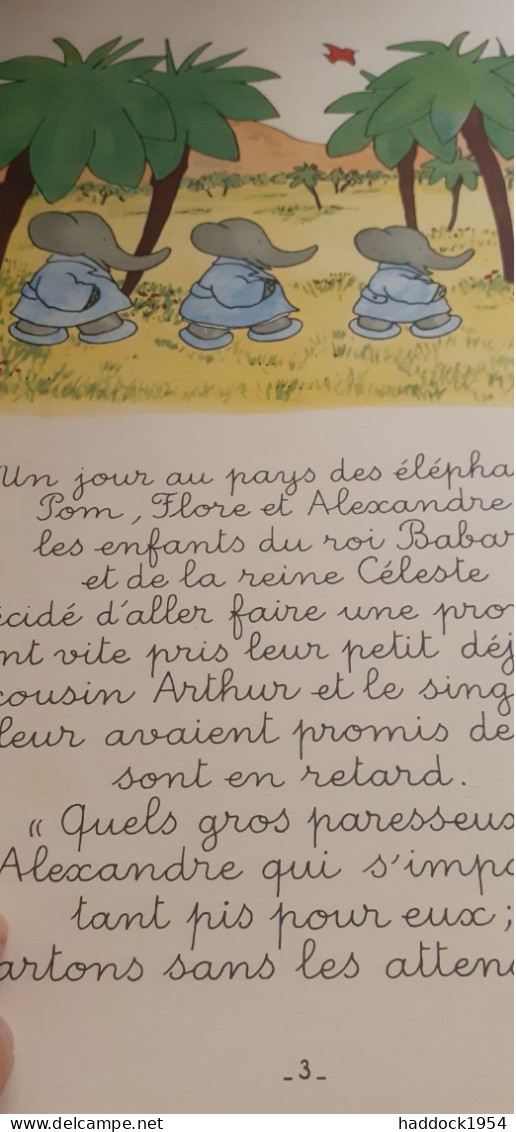 Un jour au pays des
Pom, Flore et Alexandre
les enfants du roi Babar
et de la reine Céleste
d'aller faire une
vite pris leur petit
cousin Arthur et le
leur avaient promis de
sont en retard.
« Quels gros
Alexandre qui
tant pis pour eux ;
sans les
_ 3 _
www.delcampe.net
haddock1954